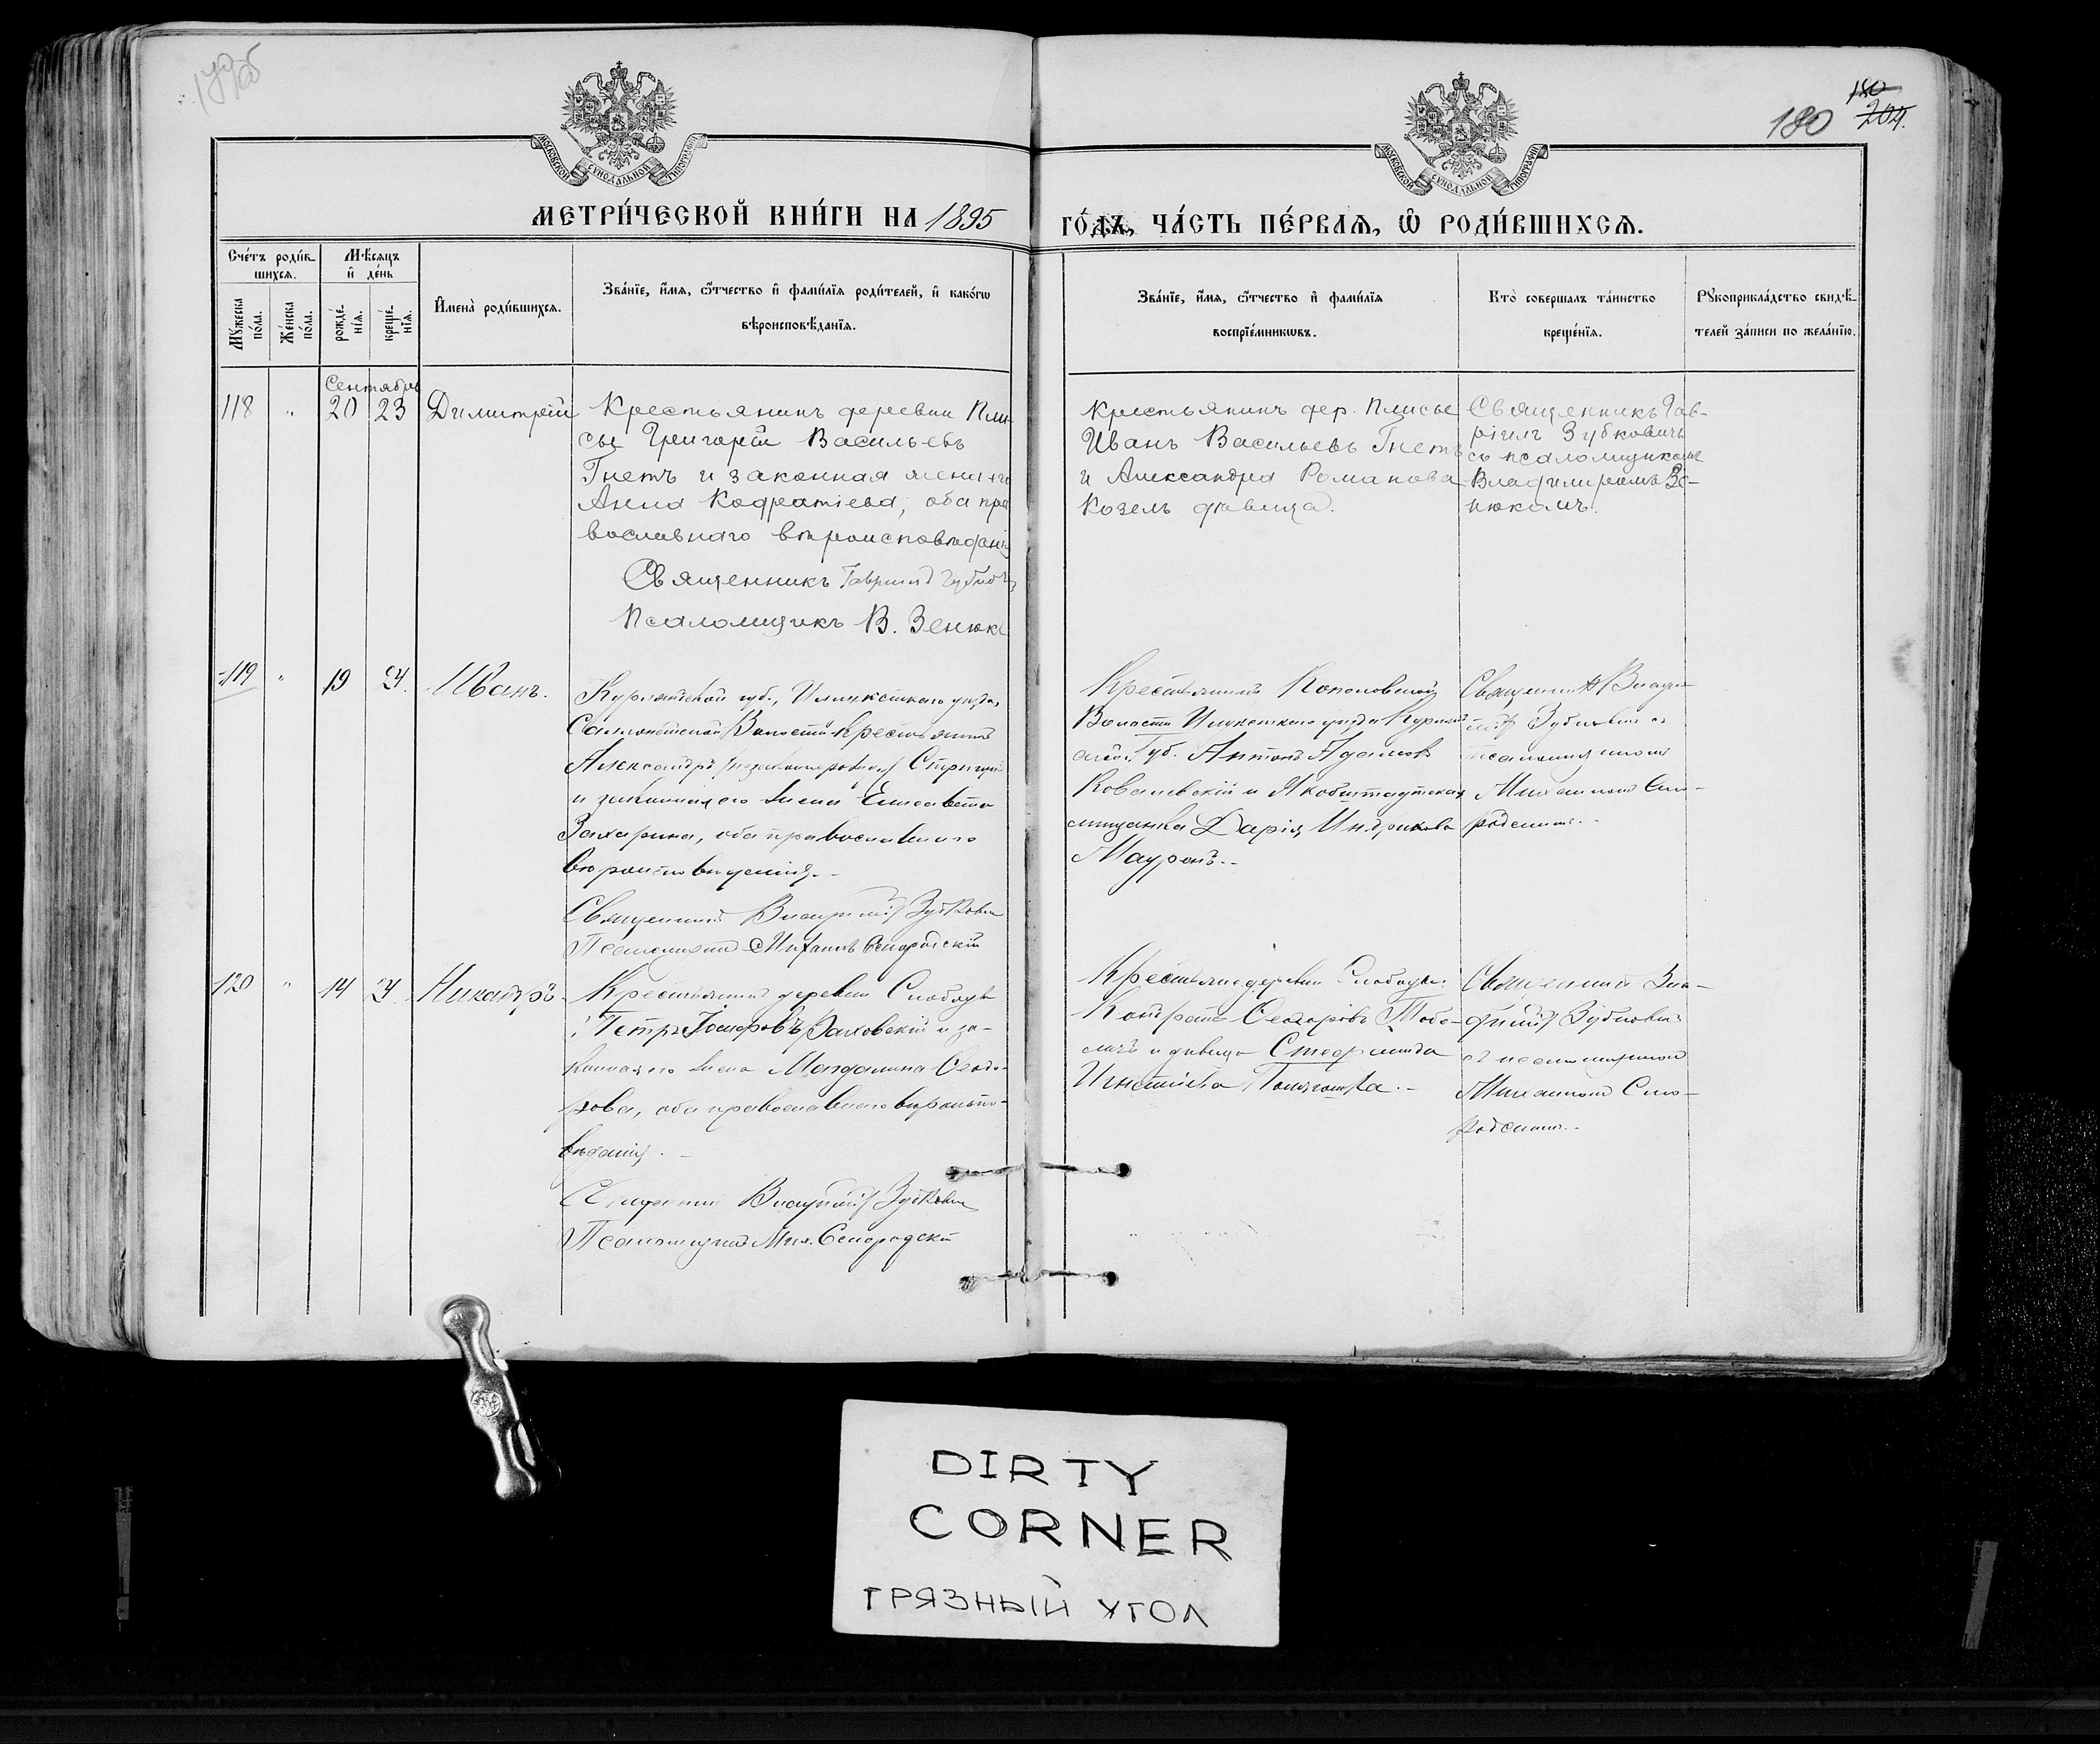 179об
180
180
204.
МОСКОВСКОЙ СѴНОДАЛЬНОЙ ТИПОГРАФІИ
МОСКОВСКОЙ СѴНОДАЛЬНОЙ ТИПОГРАФІИ
МЕТРИ́ЧЕСКОЙ КНИ́ГИ НА 1895
ГО́ДЪ, ЧА́СТЬ ПЕ́РВАѦ, Ѽ РОДИ́ВШИХСѦ.
Сче́тъ роди́в-
шихсѧ.
Мѣ́сѧцъ
и҆ де́нь
Мꙋ́жеска
по́ла.
Же́нска
по́ла.
рожде́-
нїѧ.
креще́-
нїѧ.
И҆мена̀ роди́вшихсѧ.
Зва́нїе, и҆́мѧ, ѻ҆́тчество и҆ фами́лїѧ роди́телей, и҆ како́гѡ
вѣроисповѣ́данїѧ.
Зва́нїе, и҆́мѧ, ѻ҆́тчество и҆ фами́лїѧ
воспрїе́мникѡвъ.
Кто̀ соверша́лъ та́инство
креще́нїѧ.
Рꙋкоприкла́дство свидѣ́-
телей за́писи по жела́нїю.
Сентября
118 " 20 23 Димитрій
Крестьянинъ деревни Пли-
сы Григорій Васильевъ
Гнетъ и законная жена его
Анна Кодратіева, оба пра
вославнаго вѣроисповѣданія
Священникъ Гавріилъ Зубковичъ
Псаломщикъ В. Зенюкъ
Крестьянинъ дер. Плисы
Иванъ Васильевъ Гнетъ
и Александра Романова
Козелъ дѣвица.
Священникъ Гав-
ріилъ Зубковичъ
съ псаломщикомъ
Владиміромъ Зе-
нюкомъ.
119 " 19 24. Иванъ.
Курляндской губ., Иллукстскаго уѣзда,
Волости крестьянинъ
Александръ
и законная его жена Елисавета
Захарина, оба православнаго
вѣроисповѣданія.-
Священникъ Зубковичъ
Псаломщикъ Михаилъ
Крестьянинъ
Волости Иллукстскаго уѣзда Курлянд
ской Губ. Антонъ Адамовъ
Ковалевскій и Якобштадтская
мѣщанка Дарія Индрикова
Мауронъ.-
Священникъ
Зубковичъ съ
псаломщикомъ
Михаиломъ
120 " 14 24 Никандръ.
Крестьянинъ деревни Слободы
Петръ Іосифовъ и за-
конная его жена Магдалина Ѳеодо-
рова, оба православнаго вѣроиспо-
вѣданія.-
Священникъ Зубковичъ
Псаломщикъ Мих.
Крестьяне деревни Слободы:
Кондратъ Ѳеодоровъ
и дѣвица Стефанида
Игнатіева
Священникъ
Зубковичъ
съ псаломщикомъ
Михаиломъ
DIRTY
CORNER
ГРЯЗНЫЙ УГОЛ